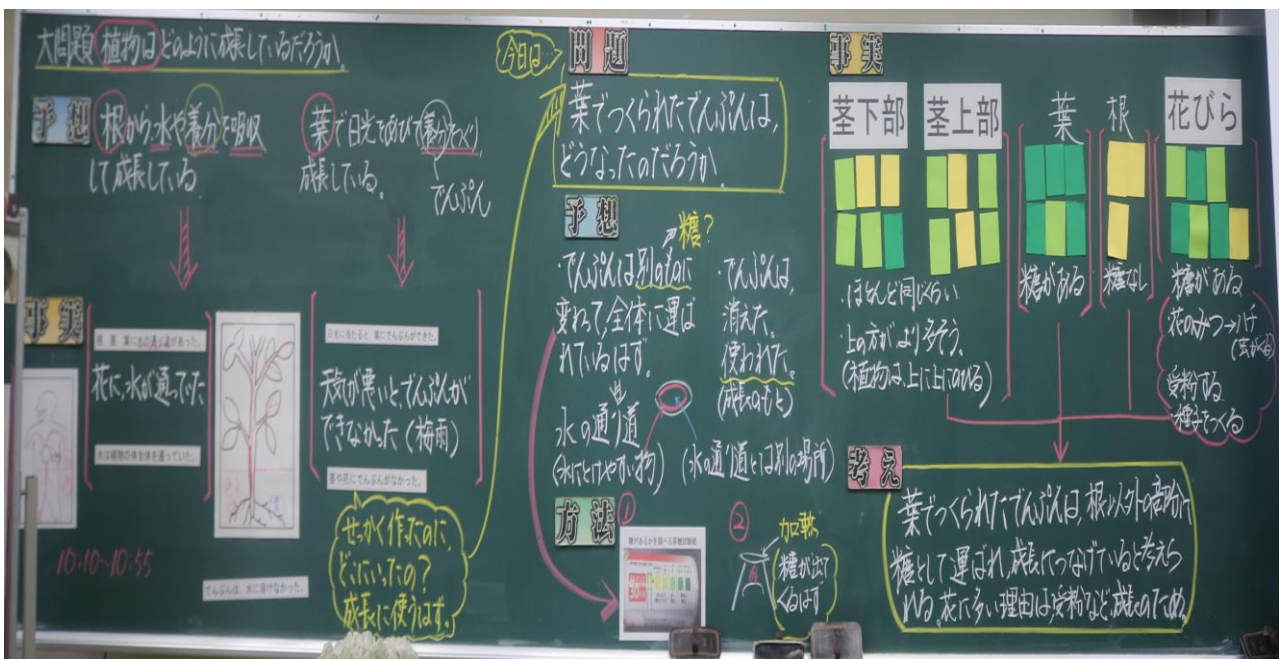 大問題 植物はどのように成長しているだろうか。
予想
根から水や養分を吸収
して成長している
葉で日光をあびて養分をつくり、
成長している。
でんぷん
事実
根、茎、葉に水の通り道があった。
花に、水が通っていた
水は植物の体全体を通っていた。
10:10~10:55
日光に当たると、葉にでんぷんができた。
天気が悪いと、でんぷんが
できなかった(梅雨)
茎や花にでんぷんがなかった。
せっかく作ったのに、
どこにいったの?
成長に使うはず。
でんぷんは、水に溶けなかった。
今日は…
問題
葉でつくられたでんぷんは、
どうなったのだろうか。
予想
糖?
・でんぷんは別のものに
変わって、全体に運ば
れているはず。
水の通り道
(水にとけやすい物)
・でんぷんは、
消えた。
使われた。
(成長のもと)
(水の通り道とは別の場所)
方法
①
糖があるかを調べる尿糖試験紙
②
加熱
糖が出て
くるはず
事実
茎下部
茎上部
葉
根
花びら
・ほとんど同じくらい
上の方がより多そう。
(植物は、上に上にのびる)
糖がある
糖なし
糖がある
花のみつ→ハチ
(虫がくる)
受粉する
・種子をつくる
考え
葉でつくられたでんぷんは、根以外の部分に
糖として運ばれ、成長につなげていると考えら
れる。花に多い理由は受粉など成長のため。